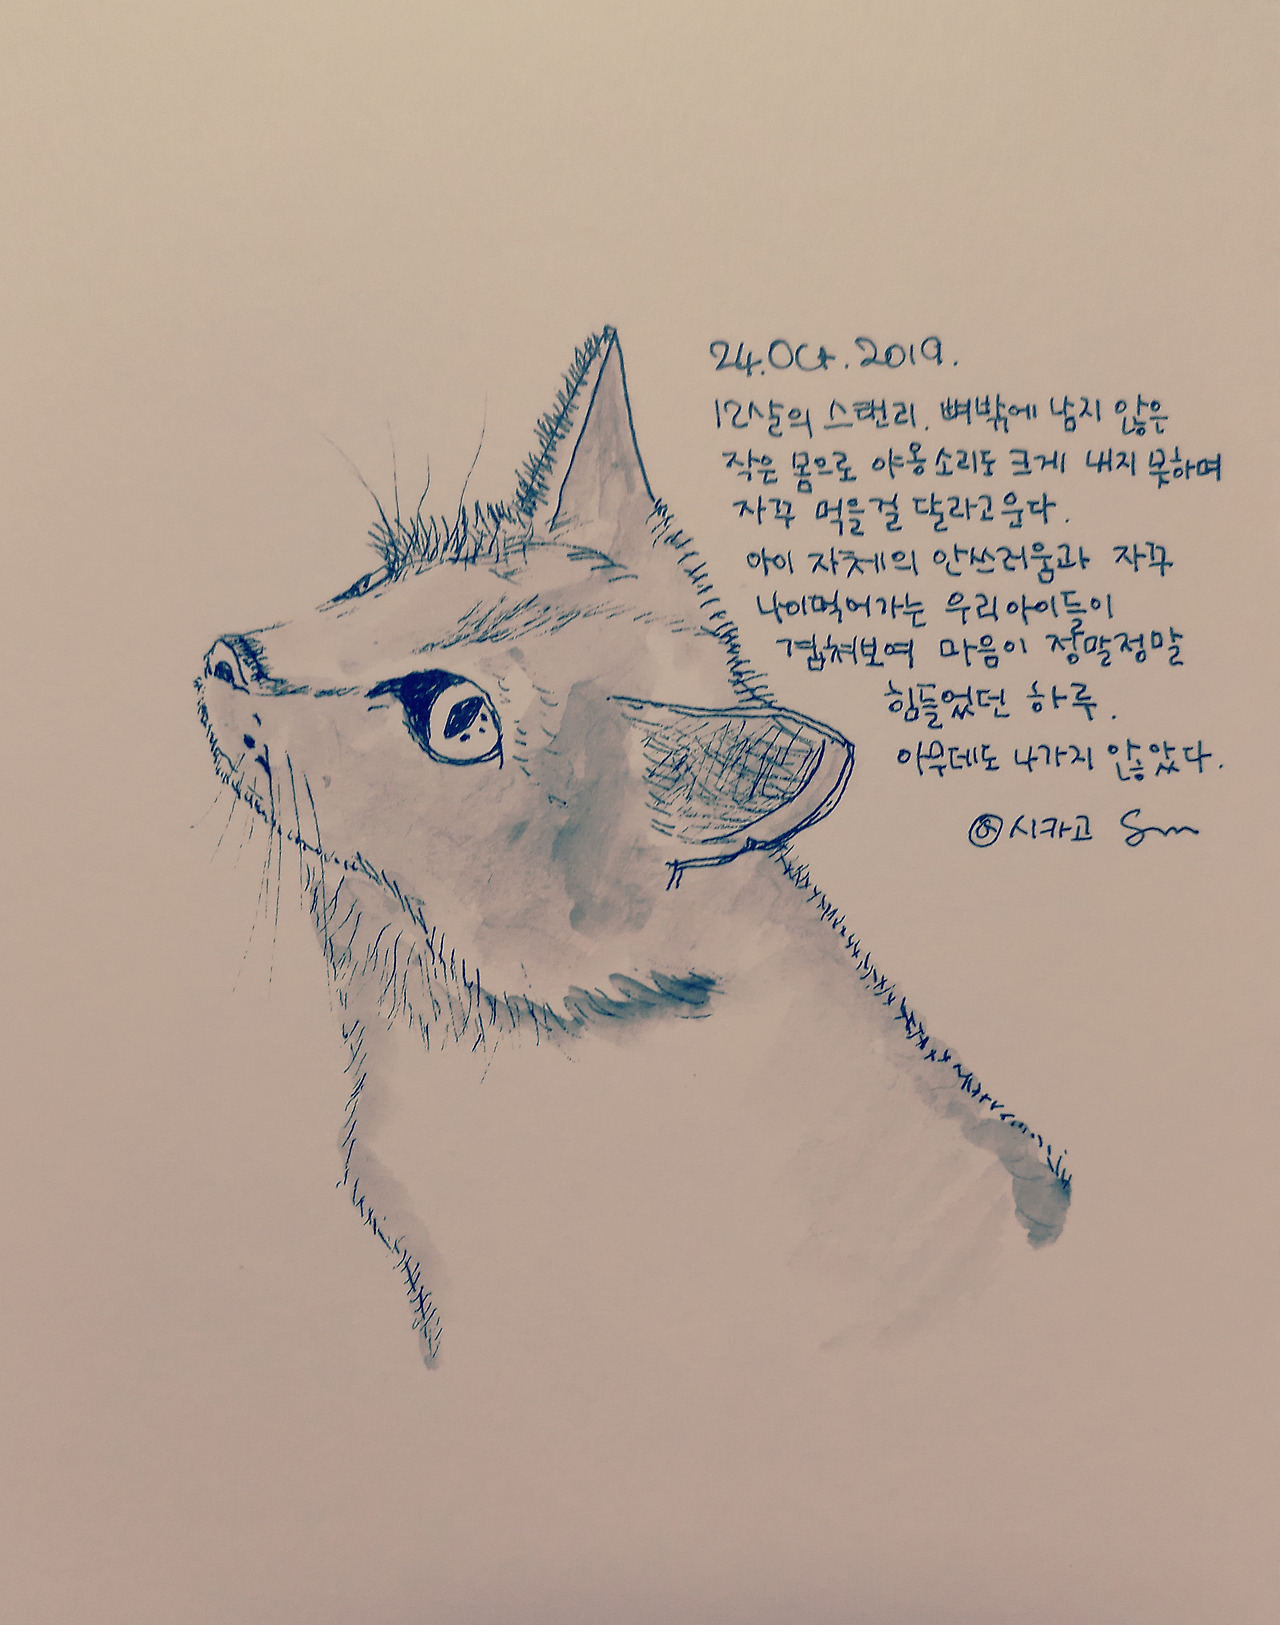 24.Oct.2019.
12살의 스탠리. 뼈밖에 남지 않은
작은 몸으로 야옹소리도 크게 내지 못하며
자꾸 먹을걸 달라고운다.
아이 자체의 안쓰러움과 자꾸
나이먹어가는 우리아이들이
겹쳐보여 마음이 정말정말
힘들었던 하루.
아무데도 나가지 않았다.
시카고 Sm